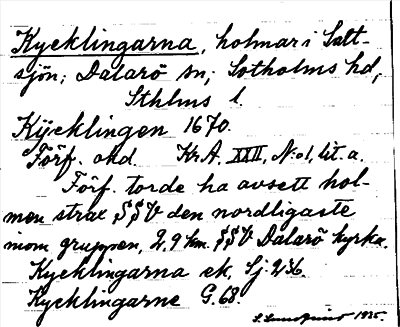 Kycklingarna, holmar i Salt-
sjön; Dalarö sn; Sotholms hd,
Sthlms l.
Kÿcklingen 1670.
Förf. okd. Kr.A. XXII, N:o1, lit. a.
Förf. torde ha avsett hol-
men strax SSV den nordligaste
inom gruppen, 2,9 km. SSV Dalarö kyrka.
Kycklingarna ek, Sj. 236.
Kycklingarne G. 68.
1935.